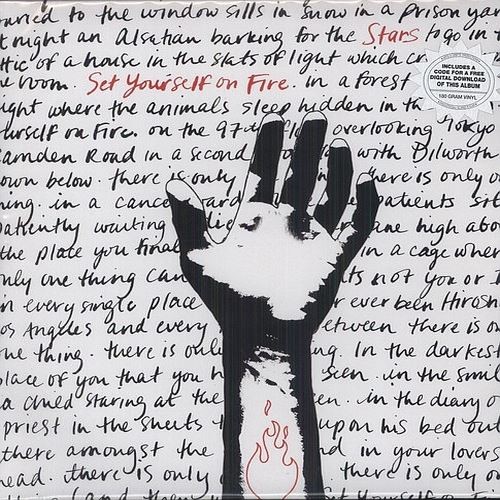 buried to the window sills in snow in a prison ya
t night an Alsatian barking for the Stars to go in t
ttic of a house in the slats of light which
he room. Set Yourself on Fire. in a forest
ight where the animals sleep hidden in th
urself on Fire. on the 97 overlooking Tokyo
amden Road in a second with Dilworth
own below. there is only there is only o
hing. in a cance ard patients sit
patiently waiting ane high abov
the place you final in a cage where
nly one thing can ts not you or
in every single place r ever been Hirosh
os Angeles and every between there is o
one thing. there is onl ng. In the darkes
place of you that you h seen. in the smil
a child staring at the en. in the diary o
priest in the sheets upon his bed out
there amongst the d in your lovers
head. there is only there is only o
INCLUDES A
CODE FOR A FREE
DIGITAL DOWNLOAD
OF THIS ALBUM
180 GRAM VINYL